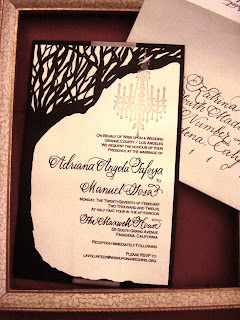 On Behalf of Wish Upon a Wedding
Orange County / Los Angeles
We request the honour of your
presence at the marriage of
Adriana Angela Tafoya
to
Manuel Sosa
Monday, the Twenty-Seventh of February
Two Thousand and Twelve
at half past four in the afternoon
The Maxwell House
55 South Grand Avenue
Pasadena, California
Reception immediately following
Please RSVP to
lavolunteer@wishuponawedding.org
Katrina
South
Number